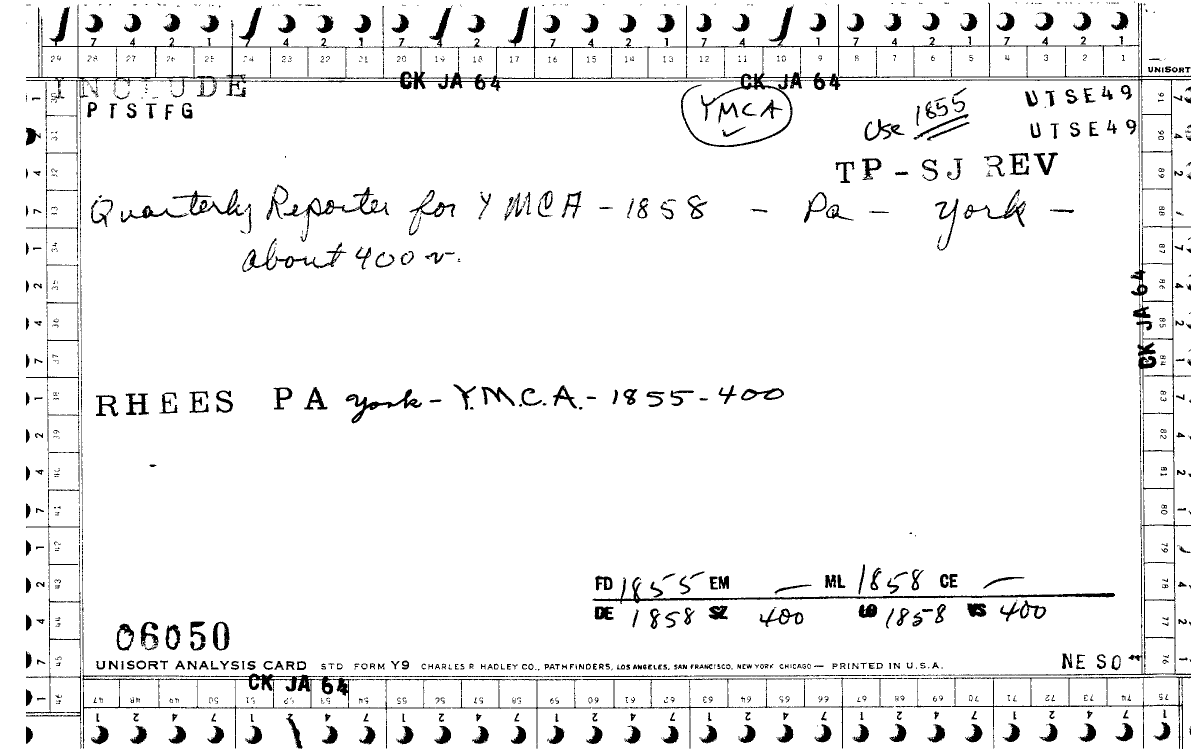 7 4 2 1 7 4 2 1 7 4 2 1 7 4 2 1 7 4 2 1 7 4 2 1
29 28 27 26 25 24 23 22 21 20 19 18 17 16 15 14 13 12 11 10 9 8 7 6 5 4 3 2 1
UNISORT
INCLUDE CK JA 64 CK JA 64
PTSTFG YMCA Use 1855 UTSE49
UTSE49
TP-SJ REV
Quarterly Reporter for YMCA - 1858 - Pa - York -
about 400 v.
CK JA 64
RHEES PA York - Y.M.C.A. - 1855 - 400
FD 1855 EM — ML 1858 CE —
DE 1858 SZ 400 LO 1858 VS 400
06050
UNISORT ANALYSIS CARD STD FORM Y9 CHARLES R HADLEY CO., PATHFINDERS, LOS ANGELES, SAN FRANCISCO, NEW YORK CHICAGO — PRINTED IN U.S.A.
NE SO
CK JA 64
47 48 49 50 51 52 53 54 55 56 57 58 59 60 61 62 63 64 65 66 67 68 69 70 71 72 73 74 75